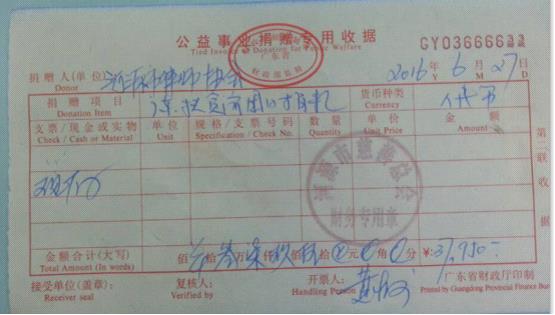 公益事业捐赠专用收据
Tied Invoice Donation for Public Welfare
广东省
财政部监制
GY03666633
捐赠人(单位) 河源市律师协会
Donor
2016 年 6 月 27 日
Y M D
捐赠项目
Donation Item
货币种类 人民币
Currency
支票/现金或实物 单位 规格/支票号码 数量 单价 金额
Check / Cash or Material Unit Specification / Check No. Quantity Unit Price Amount
河源市慈善总会
财务专用章
第二联 收据
金额合计(大写) 佰 拾叁万柒仟玖佰伍拾 元 角 分 ¥:37,950-
Total Amount (In words)
接受单位(盖章): 复核人: 开票人: 广东省财政厅印制
Receiver seal Verified by Handling Person Printed by Guangdong Provincial Finance Bureau